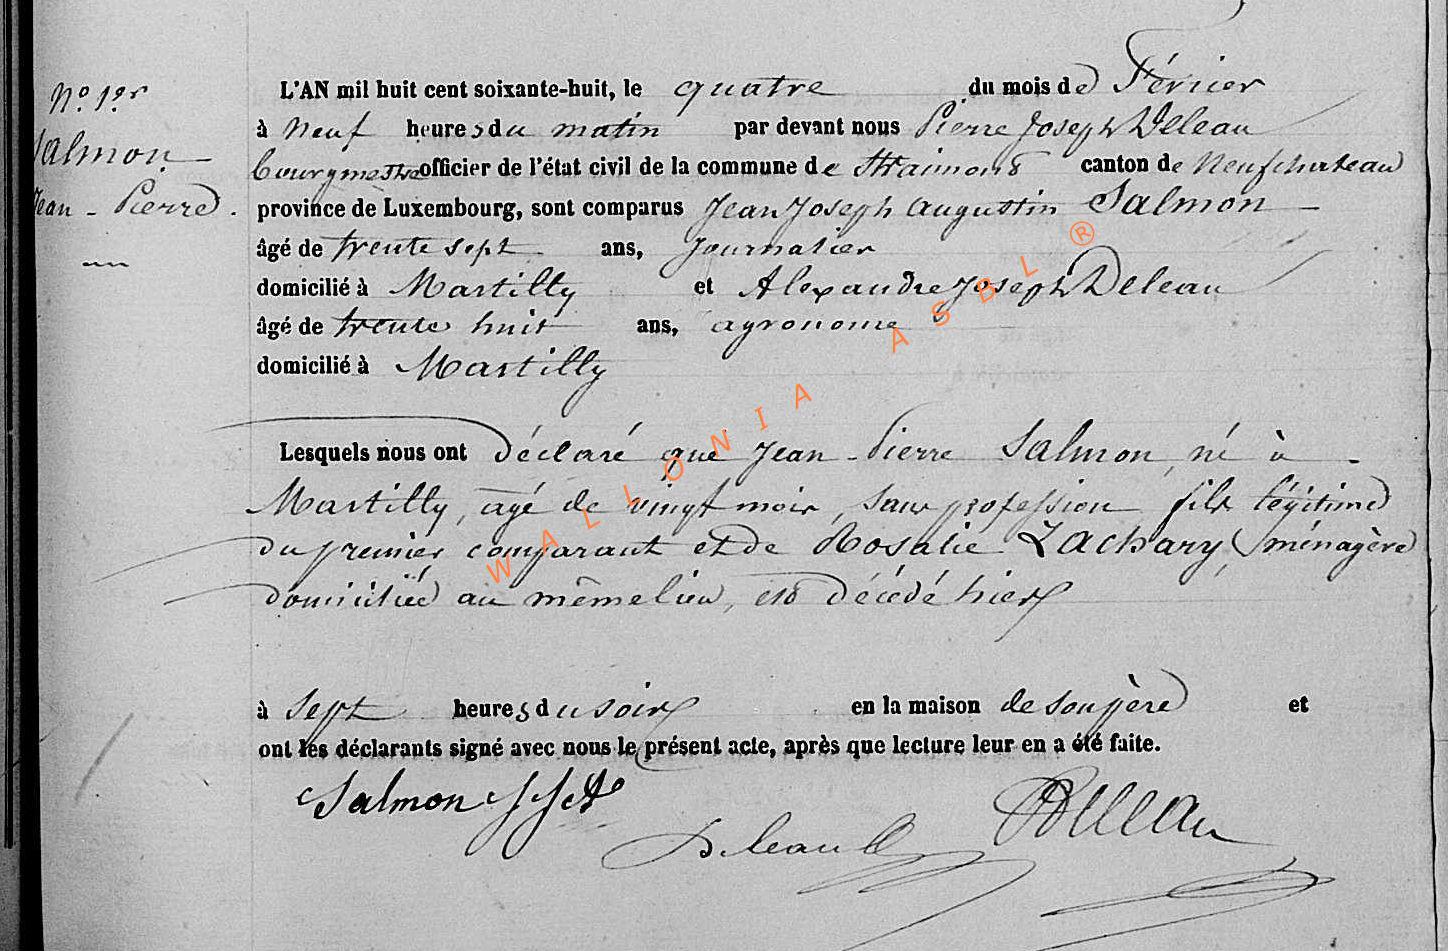 N° 1er
Salmon
Jean-Pierre.
L'AN mil huit cent soixante-huit, le quatre du mois de Février
à neuf heures du matin par devant nous Pierre Joseph Deleau
bourgmestre officier de l'état civil de la commune de Straimont canton de Neufchateau
province de Luxembourg, sont comparus Jean Joseph Augustin Salmon
âgé de trente sept ans, journalier
domicilié à Martilly et Alexandre Joseph Deleau
âgé de trente huit ans, agronome
domicilié à Martilly
Lesquels nous ont déclaré que Jean-Pierre Salmon, né à
Martilly, agé de vingt mois, sans profession fils légitime
du premier comparant et de Rosalie Zachary, ménagère
domiciliée au même lieu, est décédé hier
à sept heures du soir en la maison de son père et
ont les déclarants signé avec nous le présent acte, après que lecture leur en a été faite.
Salmon JJA
Deleau
Deleau
WALLONIA ASBL ®